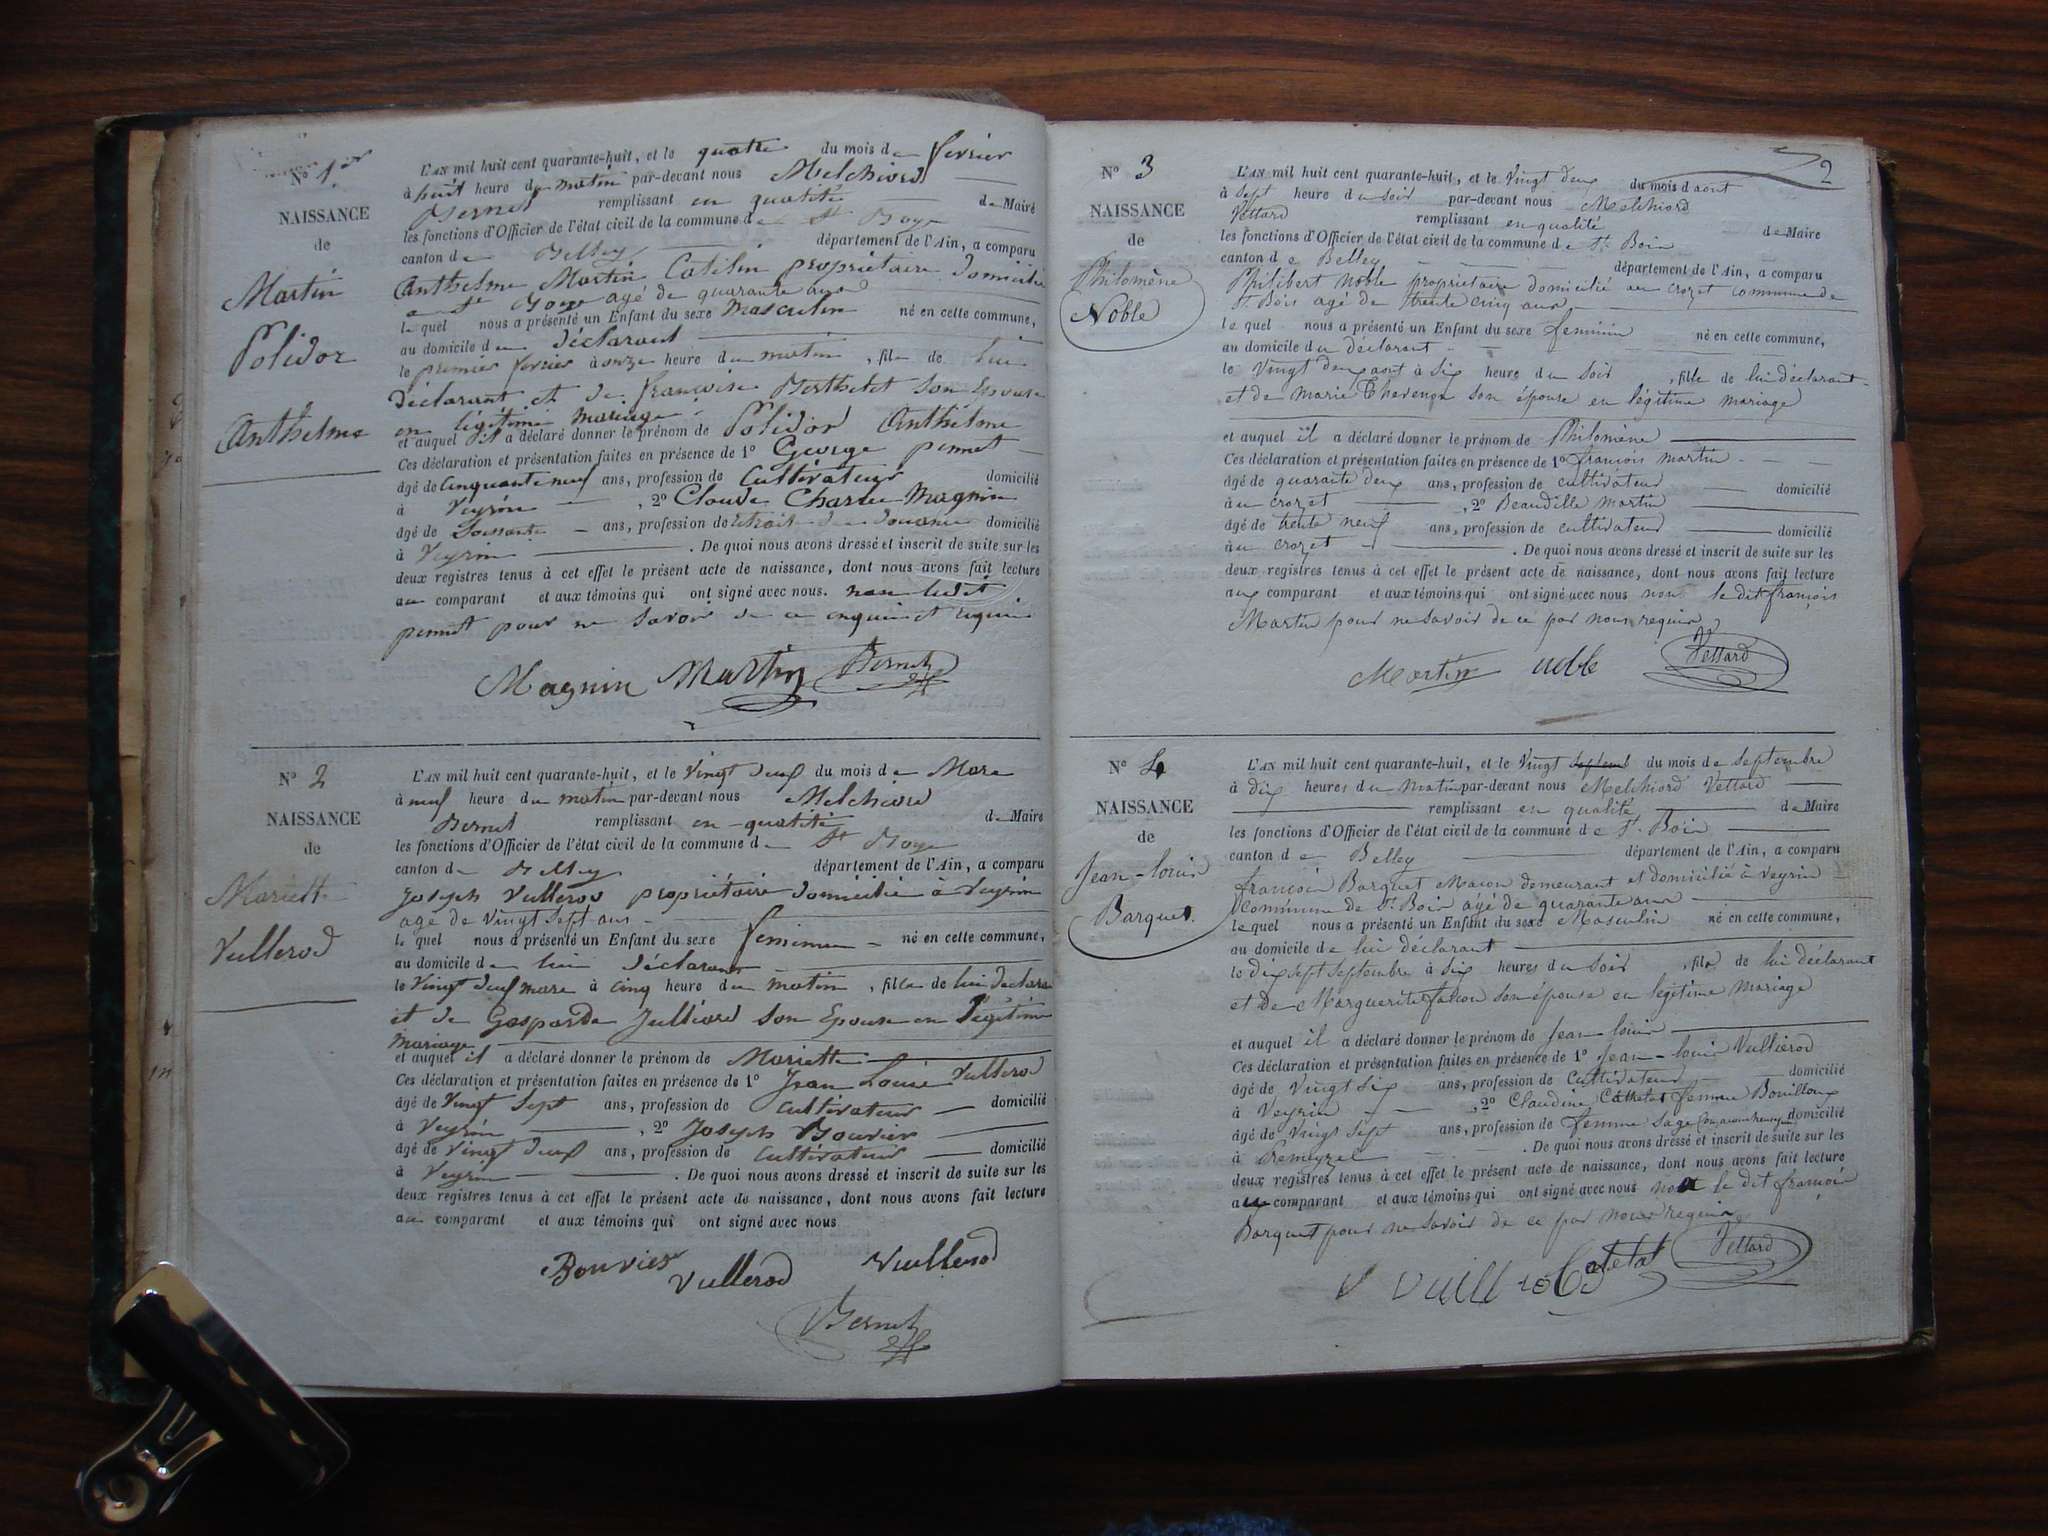 N° 1er
NAISSANCE
de
Martin
Polidor
Anthelme
L'AN mil huit cent quarante-huit, et le quatre du mois de fevrier
à huit heure du matin par-devant nous Melchiord
Bernet remplissant en qualité de Maire
les fonctions d'Officier de l'état civil de la commune de St Boys
canton de Belley département de l'Ain, a comparu
Anthelme Martin Catilin propriétaire domicilié
a St Boys agé de quarante ans
le quel nous a présenté un Enfant du sexe Masculin né en cette commune,
au domicile du déclarant
le premier fevrier à onze heure du matin, fils de lui
déclarant et de françoise Berthelet son épouse
en légitime mariage
et auquel il a déclaré donner le prénom de Polidor Anthelme
Ces déclaration et présentation faites en présence de 1° George pennet
âgé de cinquante neuf ans, profession de Cultivateur domicilié
à Veyrin, 2° Claude Charles Magnin
âgé de Soissante ans, profession de retraité de Douanne domicilié
à Veyrin. De quoi nous avons dressé et inscrit de suite sur les
deux registres tenus à cet effet le présent acte de naissance, dont nous avons fait lecture
au comparant et aux témoins qui ont signé avec nous. non ledit
pennet pour ne savoir de ce enquis et requis
Magnin Martin Bernet
N° 2
NAISSANCE
de
Mariette
Vullerod
L'AN mil huit cent quarante-huit, et le Vingt deux du mois de Mars
à neuf heure du matin par-devant nous Melchiord
Bernet remplissant en qualité de Maire
les fonctions d'Officier de l'état civil de la commune de St Boys
canton de Belley département de l'Ain, a comparu
Joseph Vullerod propriétaire domicilié à Veyrin
age de Vingt Sept ans
le quel nous a présenté un Enfant du sexe feminin né en cette commune,
au domicile de lui déclarant
le Vingt deux mars à cinq heure du matin, fille de lui déclarant
et de Gasparde Julliard son Epouse en légitime
mariage
et auquel il a déclaré donner le prénom de Mariette
Ces déclaration et présentation faites en présence de 1° Jean Louis Vullerod
âgé de Vingt Sept ans, profession de Cultivateur domicilié
à Veyrin, 2° Joseph Bouvier
âgé de Vingt deux ans, profession de cultivateur domicilié
à Veyrin. De quoi nous avons dressé et inscrit de suite sur les
deux registres tenus à cet effet le présent acte de naissance, dont nous avons fait lecture
au comparant et aux témoins qui ont signé avec nous
Bouvier Vullerod Vuillerod
Bernet
2
N° 3
NAISSANCE
de
Philomène
Noble
L'AN mil huit cent quarante-huit, et le Vingt deux du mois d aout
à Sept heure du soir par-devant nous Melchiord
Vettard remplissant en qualité de Maire
les fonctions d'Officier de l'état civil de la commune de St. Bois
canton de Belley département de l'Ain, a comparu
Philibert Noble proprietaire domicilié au crozet commune de
St Bois agé de trente cinq ans
le quel nous a présenté un Enfant du sexe feminin né en cette commune,
au domicile du déclarant
le Vingt deux aout à six heure du soir, fille de lui déclarant
et de Marie Thevenon son épouse en légitime mariage
et auquel il a déclaré donner le prénom de Philomène
Ces déclaration et présentation faites en présence de 1° françois martin
âgé de quarante deux ans, profession de cultivateur domicilié
à au crozet, 2° Beaudille Martin
âgé de trente neuf ans, profession de cultivateur domicilié
à au crozet. De quoi nous avons dressé et inscrit de suite sur les
deux registres tenus à cet effet le présent acte de naissance, dont nous avons fait lecture
aux comparant et aux témoins qui ont signé avec nous non le dit françois
Martin pour ne savoir de ce par nous requis
Martin noble Vettard
N° 4
NAISSANCE
de
Jean-louis
Barquet
L'AN mil huit cent quarante-huit, et le Vingt du mois de septembre
à dix heures du Matin par-devant nous Melchiord Vettard
remplissant en qualité de Maire
les fonctions d'Officier de l'état civil de la commune de St. Bois
canton de Belley département de l'Ain, a comparu
françois Barquet Macon demeurant et domicilié à Veyrin
Commune de St. Bois agé de quarante ans
le quel nous a présenté un Enfant du sexe Masculin né en cette commune,
au domicile de lui déclarant
le dix sept septembre à six heures du soir, fils de lui déclarant
et de Marguerite falcon son épouse en legitime mariage
et auquel il a déclaré donner le prénom de Jean-louis
Ces déclaration et présentation faites en présence de 1° Jean-louis Vullierod
âgé de Vingt six ans, profession de Cultivateur domicilié
à Veyrin, 2° Claudine Cathelat femme Bouilloux
âgé de Vingt Sept ans, profession de femme Sage domicilié
à Premeyzel. De quoi nous avons dressé et inscrit de suite sur les
deux registres tenus à cet effet le présent acte de naissance, dont nous avons fait lecture
aux comparant et aux témoins qui ont signé avec nous non le dit françois
Barquet pour ne savoir de ce par nous requis
Vuillerod Catelat Vettard